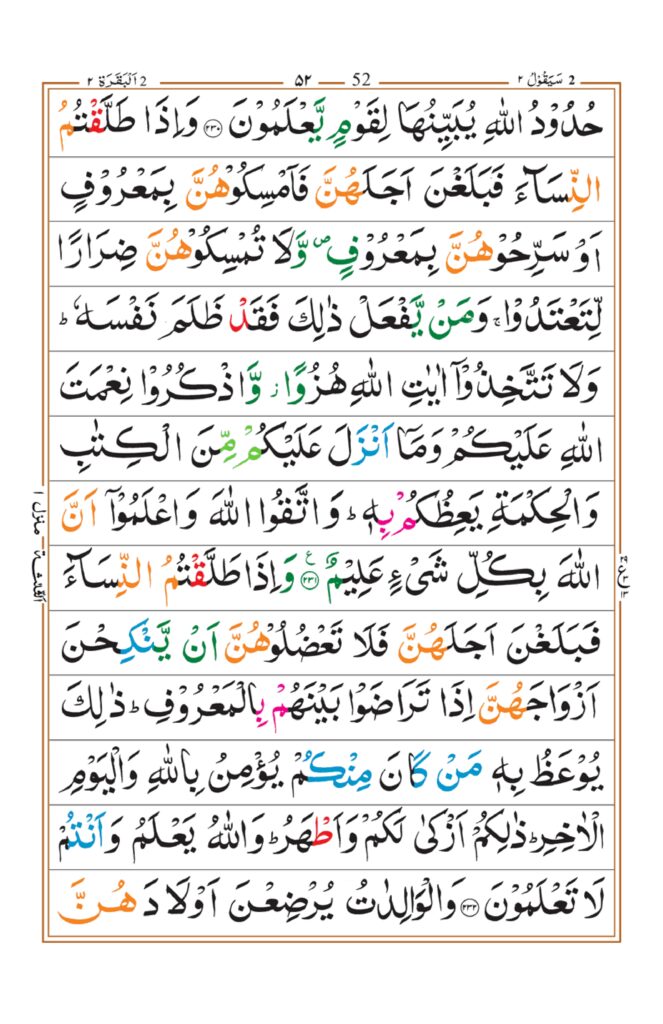 2 سَيَقُوْلُ ٢ 52 ٥٢ 2 اَلْبَقَرَة ٢
حُدُوْدُ اللّٰهِ يُبَيِّنُهَا لِقَوْمٍ يَّعْلَمُوْنَ ۝٢٣٠ وَاِذَا طَلَّقْتُمُ
النِّسَآءَ فَبَلَغْنَ اَجَلَهُنَّ فَاَمْسِكُوْهُنَّ بِمَعْرُوْفٍ
اَوْ سَرِّحُوْهُنَّ بِمَعْرُوْفٍ ۪ وَّلَا تُمْسِكُوْهُنَّ ضِرَارًا
لِّتَعْتَدُوْا ۚ وَمَنْ يَّفْعَلْ ذٰلِكَ فَقَدْ ظَلَمَ نَفْسَهٗ ؕ
وَلَا تَتَّخِذُوْٓا اٰيٰتِ اللّٰهِ هُزُوًا ؗ وَّاذْكُرُوْا نِعْمَتَ
اللّٰهِ عَلَيْكُمْ وَمَآ اَنْزَلَ عَلَيْكُمْ مِّنَ الْكِتٰبِ
وَالْحِكْمَةِ يَعِظُكُمْ بِهٖ ؕ وَاتَّقُوا اللّٰهَ وَاعْلَمُوْٓا اَنَّ
اللّٰهَ بِكُلِّ شَیْءٍ عَلِيْمٌ ۝٢٣١ ع وَاِذَا طَلَّقْتُمُ النِّسَآءَ
فَبَلَغْنَ اَجَلَهُنَّ فَلَا تَعْضُلُوْهُنَّ اَنْ يَّنْكِحْنَ
اَزْوَاجَهُنَّ اِذَا تَرَاضَوْا بَيْنَهُمْ بِالْمَعْرُوْفِ ؕ ذٰلِكَ
يُوْعَظُ بِهٖ مَنْ كَانَ مِنْكُمْ يُؤْمِنُ بِاللّٰهِ وَالْيَوْمِ
الْاٰخِرِ ؕ ذٰلِكُمْ اَزْكٰى لَكُمْ وَاَطْهَرُ ؕ وَاللّٰهُ يَعْلَمُ وَاَنْتُمْ
لَا تَعْلَمُوْنَ ۝٢٣٢ وَالْوَالِدٰتُ يُرْضِعْنَ اَوْلَادَهُنَّ
منزل ١